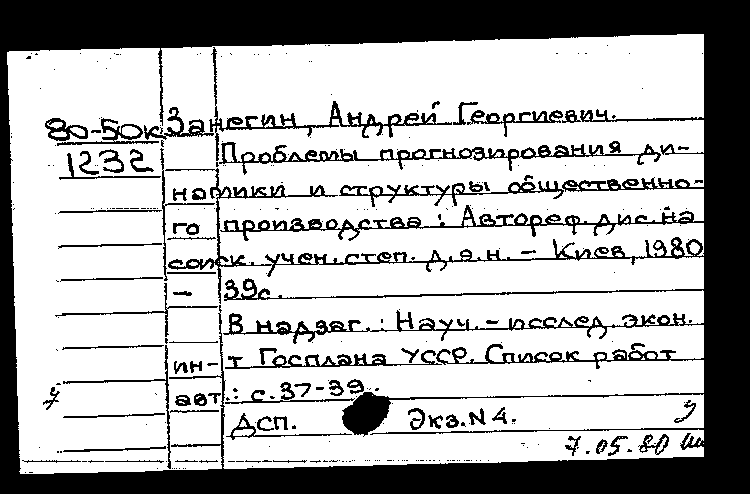 80-50к Занегин, Андрей Георгиевич.
1232 Проблемы прогнозирования ди-
намики и структуры общественно-
го производства : Автореф. дис. на
соиск. учен. степ. д.э.н. - Киев, 1980
- 39с.
В надзаг.: Науч.-исслед. экон.
ин-т Госплана УССР. Список работ
авт.: с.37-39.
Дсп. Экз.N4.
7.05.80